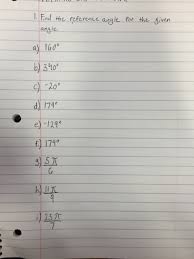 1. Find the reference angle for the given
angle.
a) 160°
b) 340°
c) -20°
d) 179°
e) -129°
f) 179°
g) 5π/6
h) 11π/9
i) 23π/7